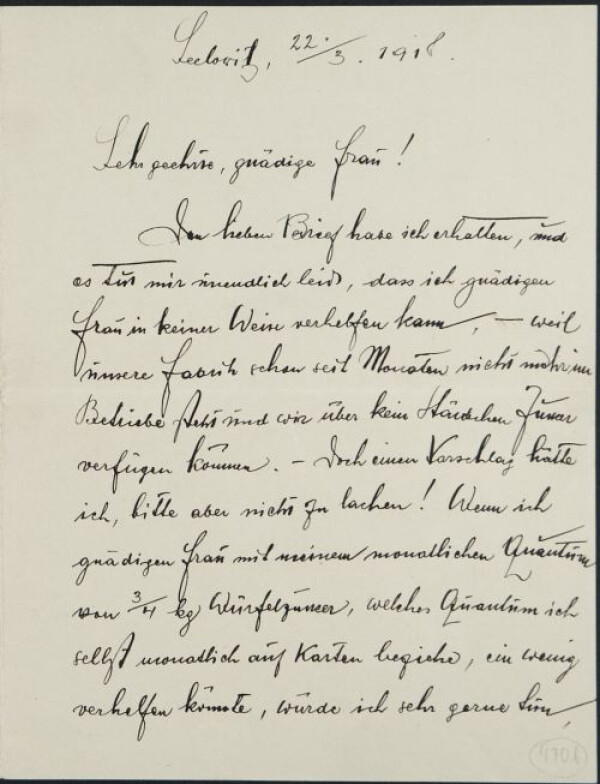 Seelowitz, 22./3. 1918.
Sehr geehrte, gnädige Frau!
Den lieben Brief habe ich erhalten, und
es tut mir unendlich leid, dass ich gnädigen
Frau in keiner Weise verhelfen kann, – weil
unsere Fabrik schon seit Monaten nicht mehr im
Betriebe steht und wir über kein Stäubchen Zucker
verfügen können. – Doch einen Vorschlag hätte
ich, bitte aber nicht zu lachen! Wenn ich
gnädigen Frau mit meinem monatlichen Quantum
von 3/4 kg Würfelzucker, welches Quantum ich
selbst monatlich auf Karten beziehe, ein wenig
verhelfen könnte, würde ich sehr gerne tun,